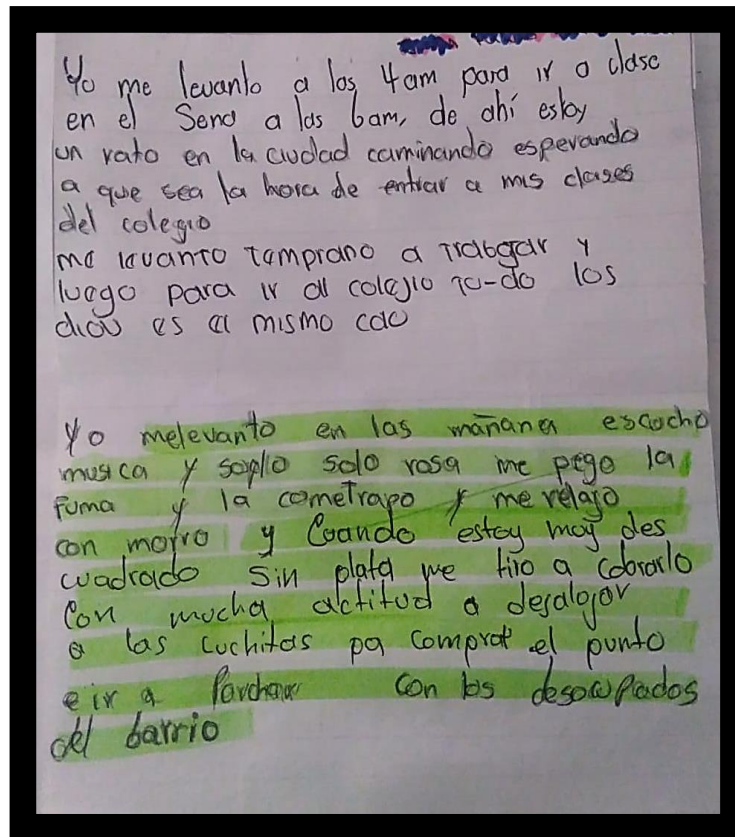 Yo me levanto a las 4am para ir a clase
en el Sena a las 6am, de ahí estoy
un rato en la ciudad caminando esperando
a que sea la hora de entrar a mis clases
del colegio
me levanto temprano a trabgar y
luego para ir al colejio to-do los
dias es el mismo cao
Yo melevanto en las mañana escucho
musica y soplo solo rosa me pego la
fuma y la cometrapo y me relajo
con morro y Cuando estoy muy des
cuadrado Sin plata me tiro a cobrarlo
Con mucha actitud a desalojar
a las cuchitas pa comprar el punto
e ir a Parchar con los desocupados
del barrio